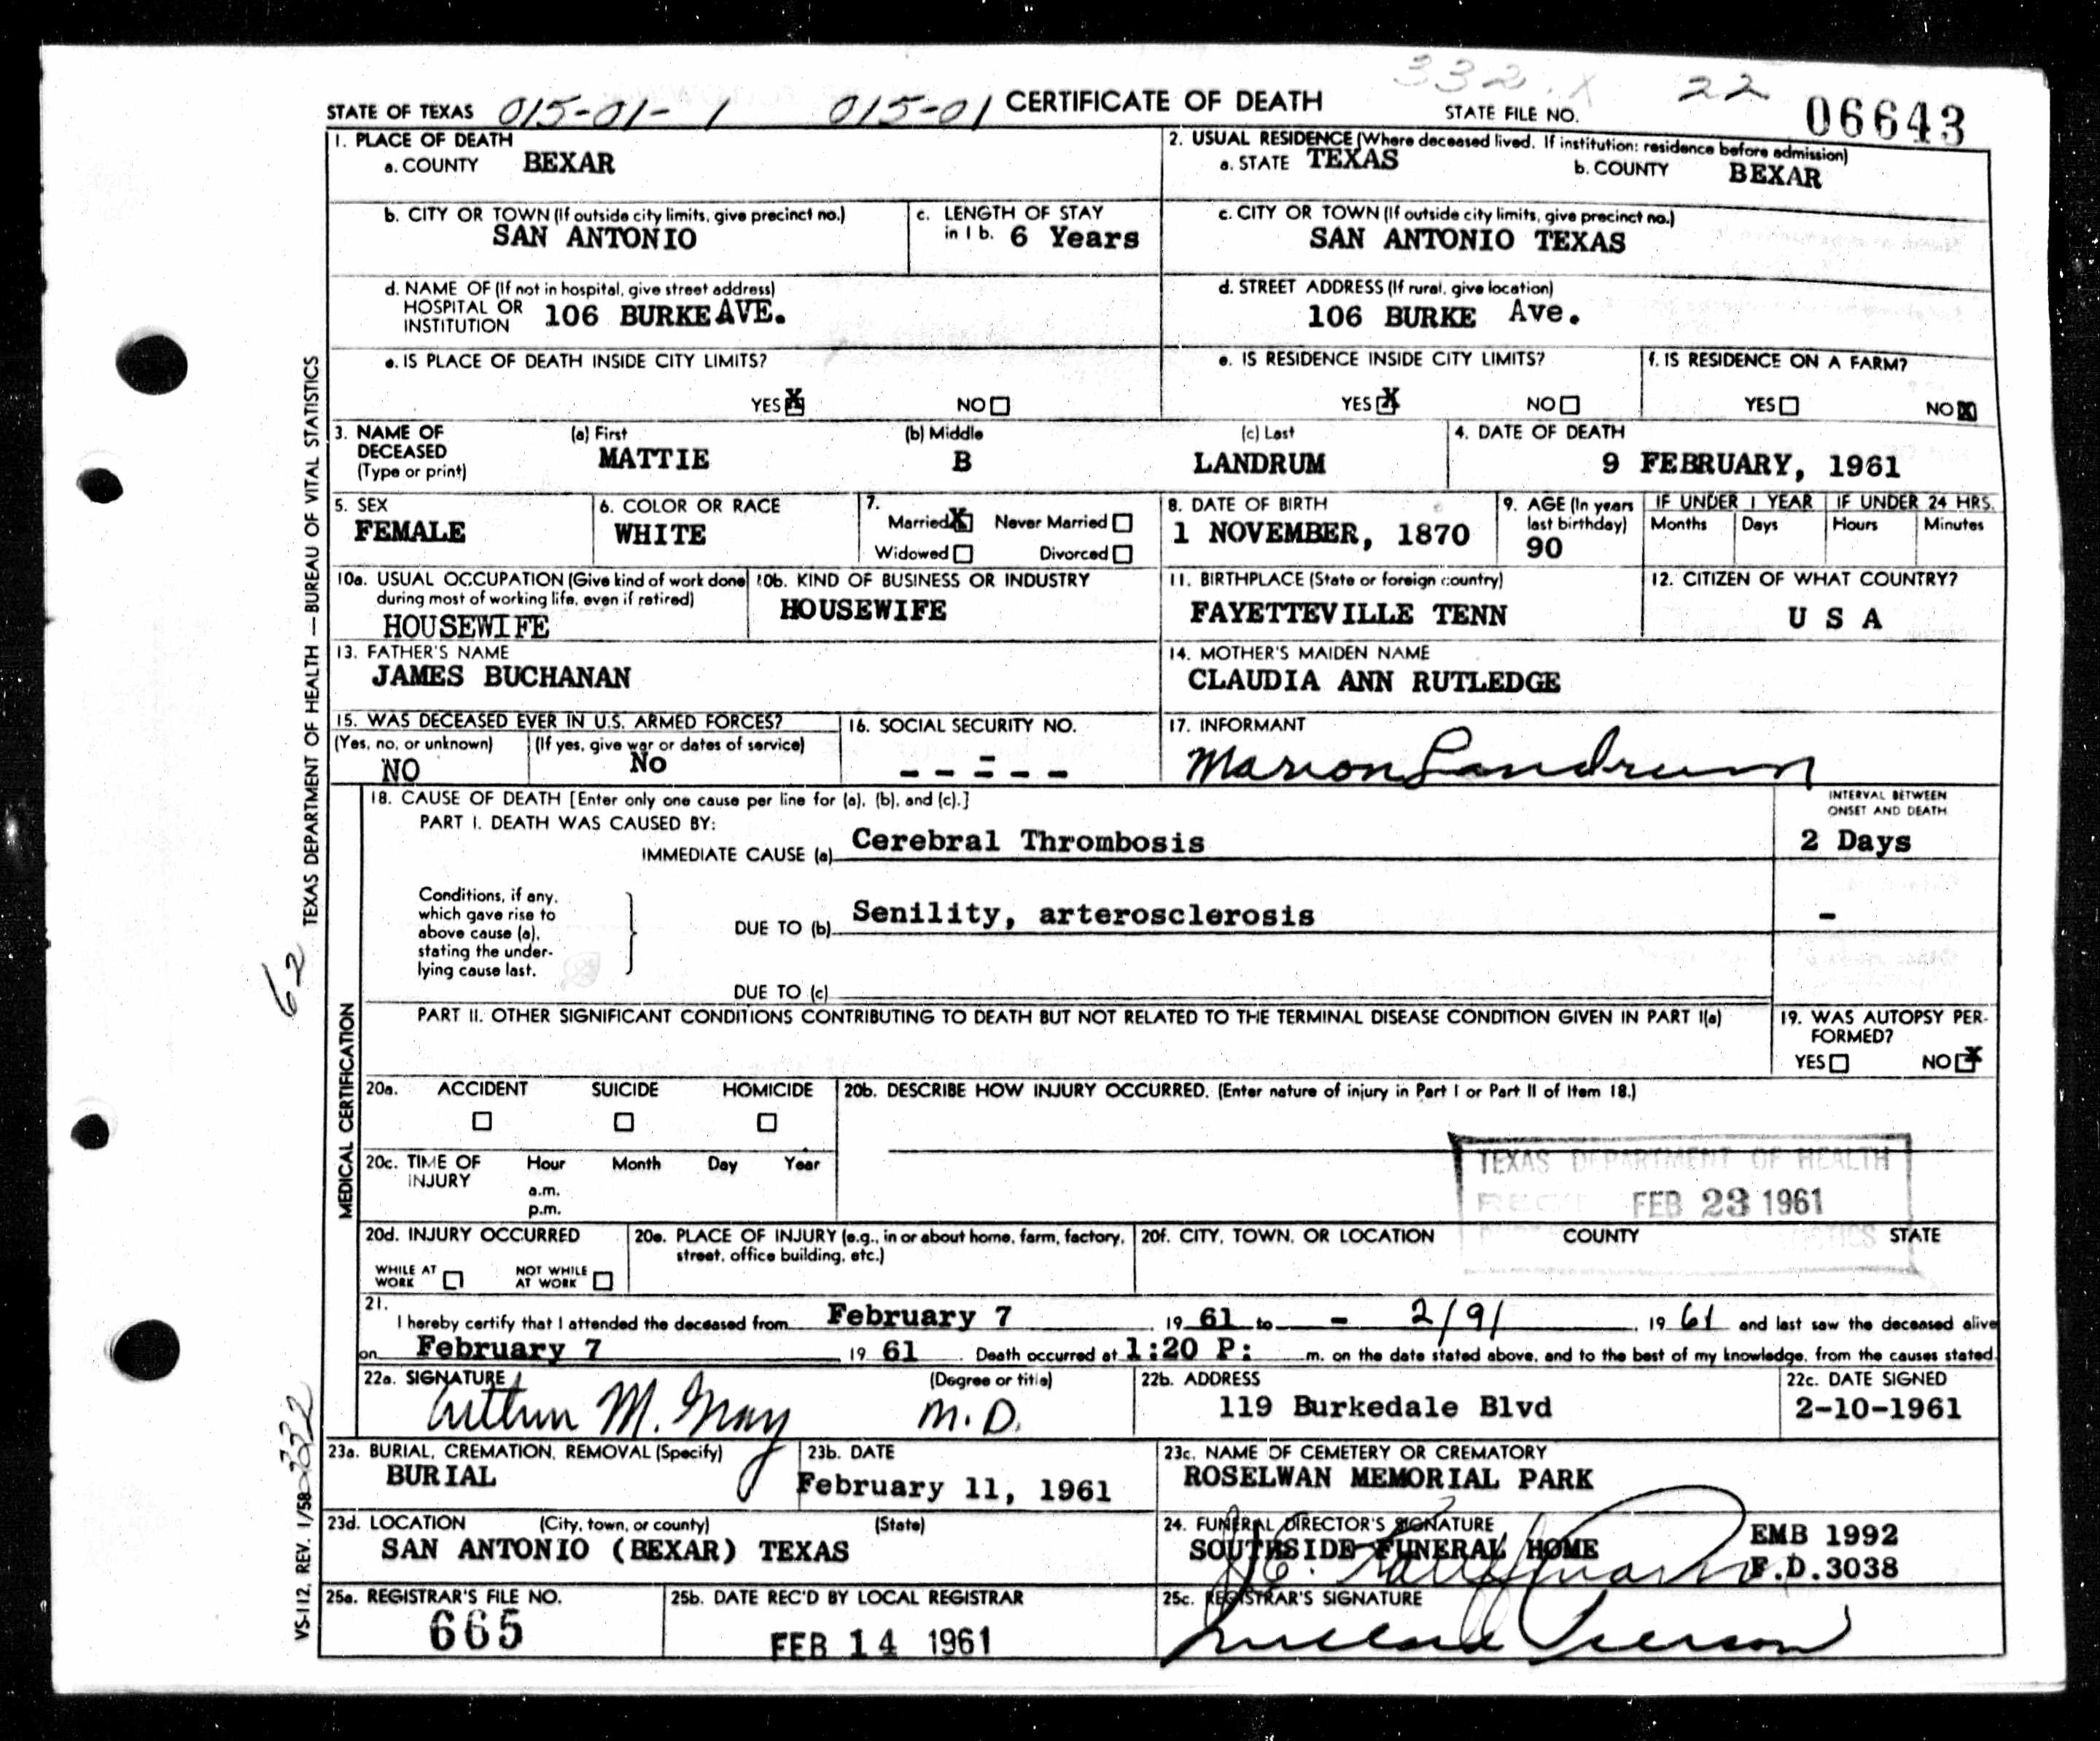 332 X 22
STATE OF TEXAS 015-01-1 015-01 CERTIFICATE OF DEATH STATE FILE NO. 06643
1. PLACE OF DEATH
a. COUNTY BEXAR
2. USUAL RESIDENCE (Where deceased lived. If institution: residence before admission)
a. STATE TEXAS b. COUNTY BEXAR
b. CITY OR TOWN (If outside city limits, give precinct no.)
SAN ANTONIO
c. LENGTH OF STAY
in 1 b. 6 Years
c. CITY OR TOWN (If outside city limits, give precinct no.)
SAN ANTONIO TEXAS
d. NAME OF (If not in hospital, give street address)
HOSPITAL OR
INSTITUTION 106 BURKE AVE.
d. STREET ADDRESS (If rural, give location)
106 BURKE Ave.
e. IS PLACE OF DEATH INSIDE CITY LIMITS?
YES X NO
e. IS RESIDENCE INSIDE CITY LIMITS?
YES X NO
f. IS RESIDENCE ON A FARM?
YES NO X
3. NAME OF
DECEASED
(Type or print)
(a) First
MATTIE
(b) Middle
B
(c) Last
LANDRUM
4. DATE OF DEATH
9 FEBRUARY, 1961
5. SEX
FEMALE
6. COLOR OR RACE
WHITE
7.
Married X Never Married
Widowed Divorced
8. DATE OF BIRTH
1 NOVEMBER, 1870
9. AGE (In years
last birthday)
90
IF UNDER 1 YEAR
Months Days
IF UNDER 24 HRS.
Hours Minutes
10a. USUAL OCCUPATION (Give kind of work done
during most of working life, even if retired)
HOUSEWIFE
10b. KIND OF BUSINESS OR INDUSTRY
HOUSEWIFE
11. BIRTHPLACE (State or foreign country)
FAYETTEVILLE TENN
12. CITIZEN OF WHAT COUNTRY?
U S A
13. FATHER'S NAME
JAMES BUCHANAN
14. MOTHER'S MAIDEN NAME
CLAUDIA ANN RUTLEDGE
15. WAS DECEASED EVER IN U.S. ARMED FORCES?
(Yes, no, or unknown)
NO
(If yes, give war or dates of service)
No
16. SOCIAL SECURITY NO.
- - - - -
17. INFORMANT
Marion Landrum
18. CAUSE OF DEATH [Enter only one cause per line for (a), (b), and (c).]
PART I. DEATH WAS CAUSED BY:
IMMEDIATE CAUSE (a) Cerebral Thrombosis
INTERVAL BETWEEN
ONSET AND DEATH
2 Days
Conditions, if any,
which gave rise to
above cause (a),
stating the under-
lying cause last.
DUE TO (b) Senility, arterosclerosis
-
DUE TO (c)
PART II. OTHER SIGNIFICANT CONDITIONS CONTRIBUTING TO DEATH BUT NOT RELATED TO THE TERMINAL DISEASE CONDITION GIVEN IN PART I(a)
19. WAS AUTOPSY PER-
FORMED?
YES NO X
20a. ACCIDENT SUICIDE HOMICIDE
20b. DESCRIBE HOW INJURY OCCURRED. (Enter nature of injury in Part I or Part II of Item 18.)
20c. TIME OF
INJURY
Hour Month Day Year
a.m.
p.m.
TEXAS DEPARTMENT OF HEALTH
FEB 23 1961
20d. INJURY OCCURRED
WHILE AT
WORK
NOT WHILE
AT WORK
20e. PLACE OF INJURY (e.g., in or about home, farm, factory,
street, office building, etc.)
20f. CITY, TOWN, OR LOCATION COUNTY STATE
21.
I hereby certify that I attended the deceased from February 7 1961 to - 2/9/ 1961 and last saw the deceased alive
on February 7 1961. Death occurred at 1:20 P: m. on the date stated above, and to the best of my knowledge, from the causes stated.
22a. SIGNATURE (Degree or title)
Arthur M. Gray M.D.
22b. ADDRESS
119 Burkedale Blvd
22c. DATE SIGNED
2-10-1961
23a. BURIAL, CREMATION, REMOVAL (Specify)
BURIAL
23b. DATE
February 11, 1961
23c. NAME OF CEMETERY OR CREMATORY
ROSELWAN MEMORIAL PARK
23d. LOCATION (City, town, or county) (State)
SAN ANTONIO (BEXAR) TEXAS
24. FUNERAL DIRECTOR'S SIGNATURE
SOUTHSIDE FUNERAL HOME
EMB 1992
F.D.3038
25a. REGISTRAR'S FILE NO.
665
25b. DATE REC'D BY LOCAL REGISTRAR
FEB 14 1961
25c. REGISTRAR'S SIGNATURE
TEXAS DEPARTMENT OF HEALTH — BUREAU OF VITAL STATISTICS
62
MEDICAL CERTIFICATION
VS-112, REV. 1/58 332